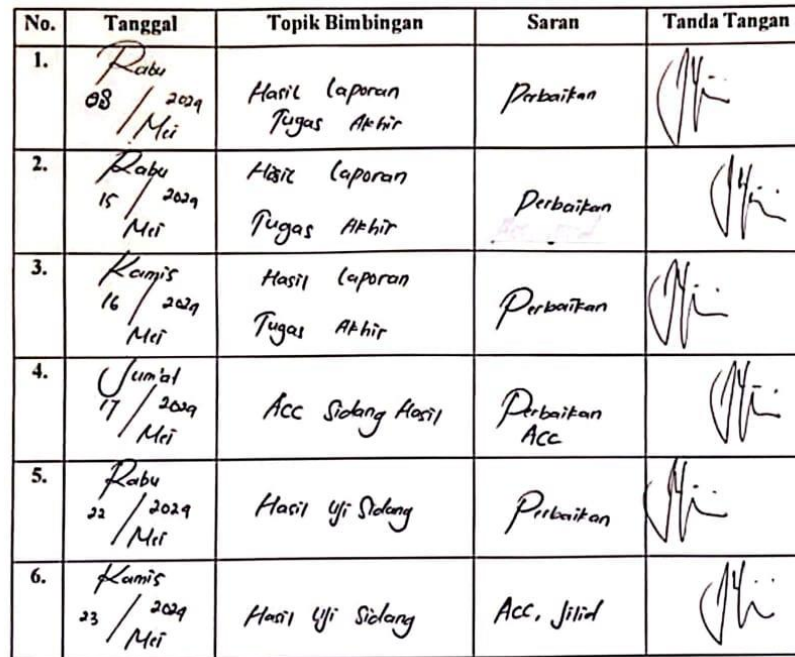 No. Tanggal Topik Bimbingan Saran Tanda Tangan
1. Rabu
08 / 2024
Mei
Hasil Laporan
Tugas Akhir
Perbaikan
2. Rabu
15 / 2024
Mei
Hasil Laporan
Tugas Akhir
Perbaikan
3. Kamis
16 / 2024
Mei
Hasil Laporan
Tugas Akhir
Perbaikan
4. Jum'at
17 / 2024
Mei
Acc Sidang Hasil
Perbaikan
Acc
5. Rabu
22 / 2024
Mei
Hasil Uji Sidang
Perbaikan
6. Kamis
23 / 2024
Mei
Hasil Uji Sidang
Acc, Jilid